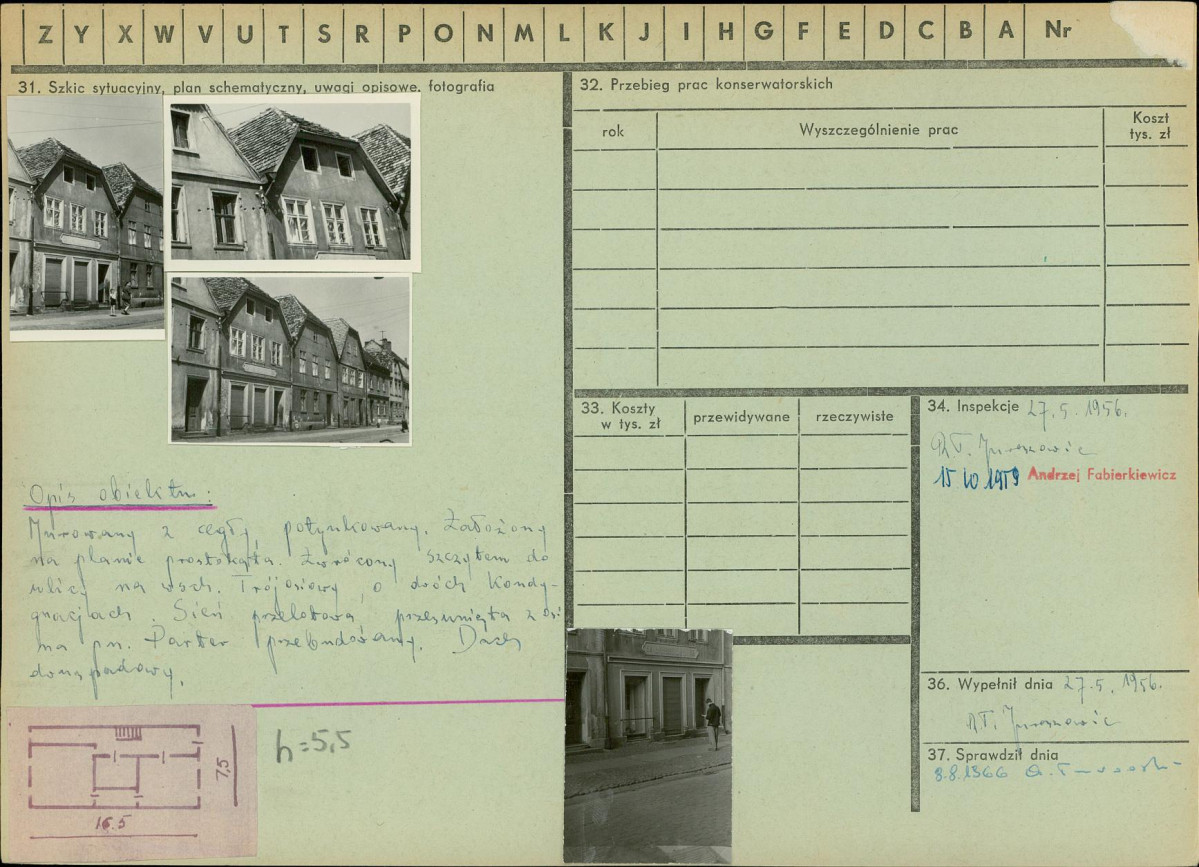 Z Y X W V U T S R P O N M L K J I H G F E D C B A Nr
31. Szkic sytuacyjny, plan schematyczny, uwagi opisowe, fotografia
Opis obiektu:
Murowany z cegły, potynkowany. Założony
na planie prostokąta. Zwrócony szczytem do
ulicy na wsch. Trójosiowy, o dwóch kondy-
gnacjach. Sień przelotowa przesunięta z osi
na pn. Parter przebudowany. Dach
dwuspadowy.
7,5
16.5
h=5,5
32. Przebieg prac konserwatorskich
rok
Wyszczególnienie prac
Koszt
tys. zł
33. Koszty
w tys. zł
przewidywane
rzeczywiste
34. Inspekcje 27.5.1956.
15.10.1959 Andrzej Fabierkiewicz
36. Wypełnił dnia 27.5.1956.
37. Sprawdził dnia
8.8.1966